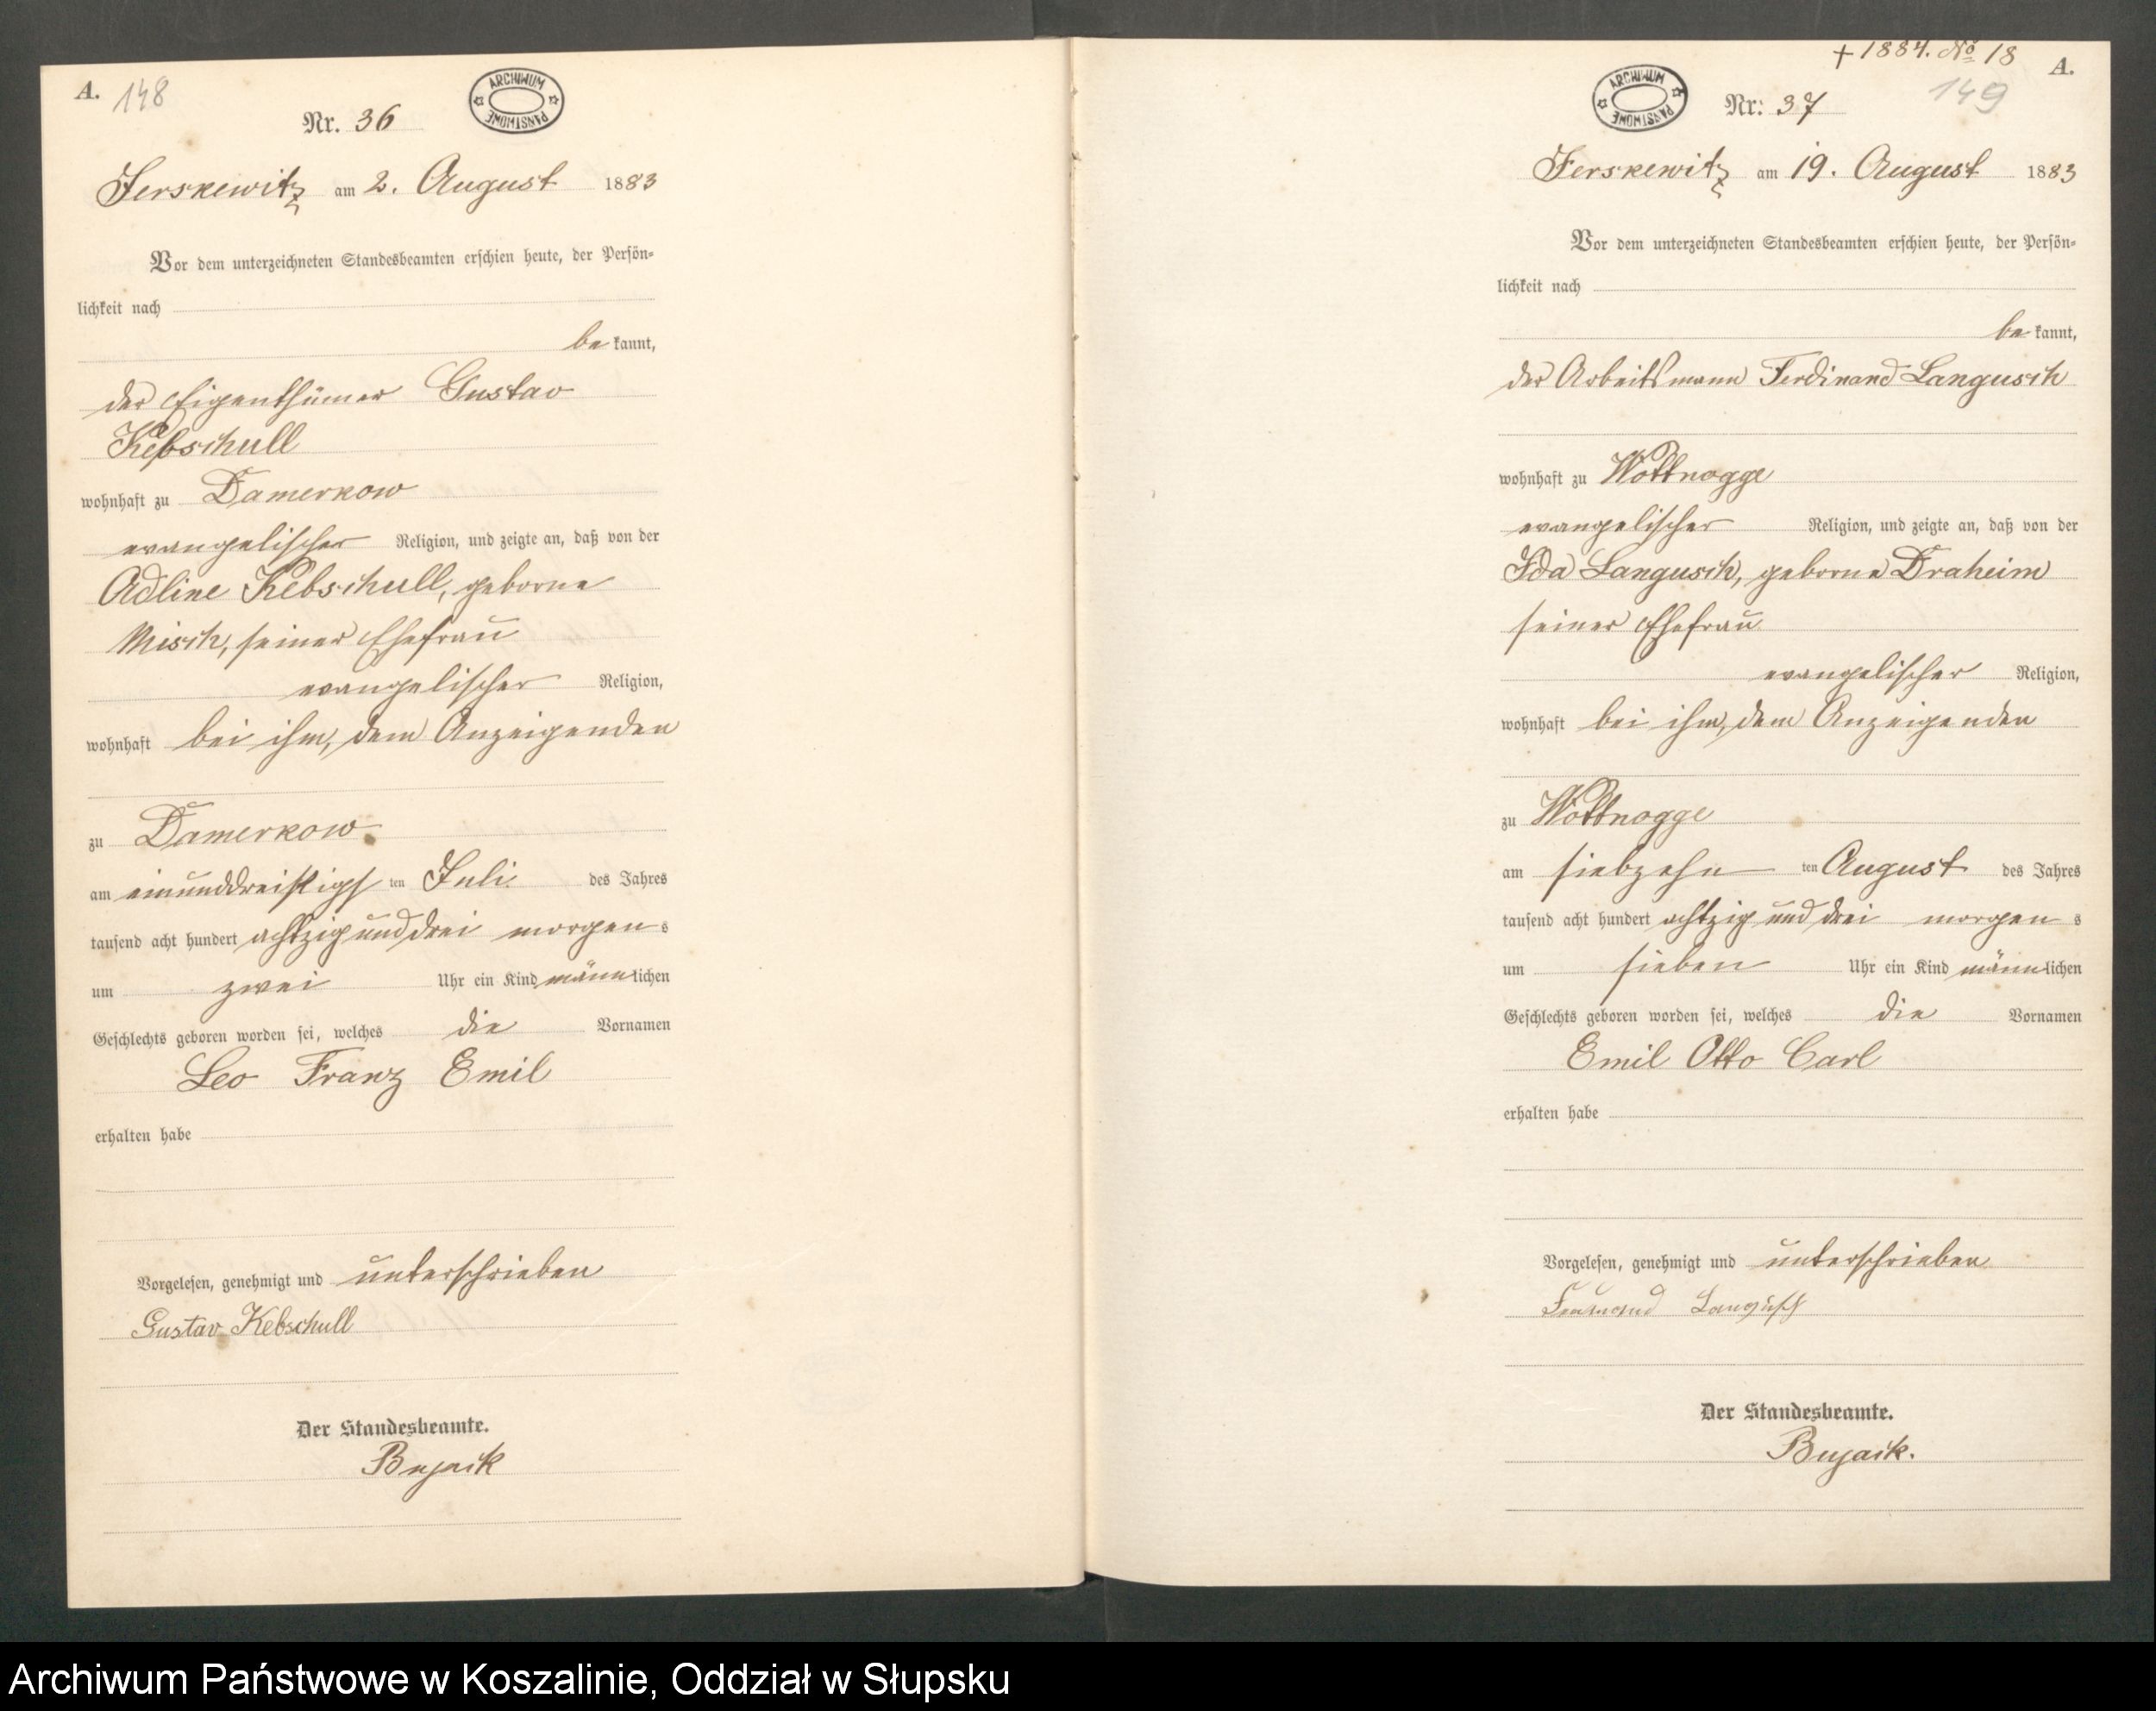 A.
148
ARCHIWUM PAŃSTWOWE
Nr. 36
Jerskewitz am 2. August 1883
Vor dem unterzeichneten Standesbeamten erschien heute, der Persön-
lichkeit nach
be kannt,
der Eigenthümer Gustav
Kebschull
wohnhaft zu Damerkow
evangelischer Religion, und zeigte an, daß von der
Adline Kebschull, geborne
Misch, seiner Ehefrau
evangelischer Religion,
wohnhaft bei ihm, dem Anzeigenden
zu Damerkow
am einunddreißigs ten Juli des Jahres
tausend acht hundert achtzig und drei morgen s
um zwei Uhr ein Kind männ lichen
Geschlechts geboren worden sei, welches die Vornamen
Leo Franz Emil
erhalten habe
Vorgelesen, genehmigt und unterschrieben
Gustav Kebschull
Der Standesbeamte.
Bujack
+ 1884. No 18
A.
149
ARCHIWUM PAŃSTWOWE
Nr. 37
Jerskewitz am 19. August 1883
Vor dem unterzeichneten Standesbeamten erschien heute, der Persön-
lichkeit nach
be kannt,
der Arbeitsmann Ferdinand Langusch
wohnhaft zu Wottnogge
evangelischer Religion, und zeigte an, daß von der
Ida Langusch, geborne Draheim
seiner Ehefrau
evangelischer Religion,
wohnhaft bei ihm, dem Anzeigenden
zu Wottnogge
am siebzehn ten August des Jahres
tausend acht hundert achtzig und drei morgen s
um sieben Uhr ein Kind männ lichen
Geschlechts geboren worden sei, welches die Vornamen
Emil Otto Carl
erhalten habe
Vorgelesen, genehmigt und unterschrieben
Langusch
Der Standesbeamte.
Bujack.
Archiwum Państwowe w Koszalinie, Oddział w Słupsku